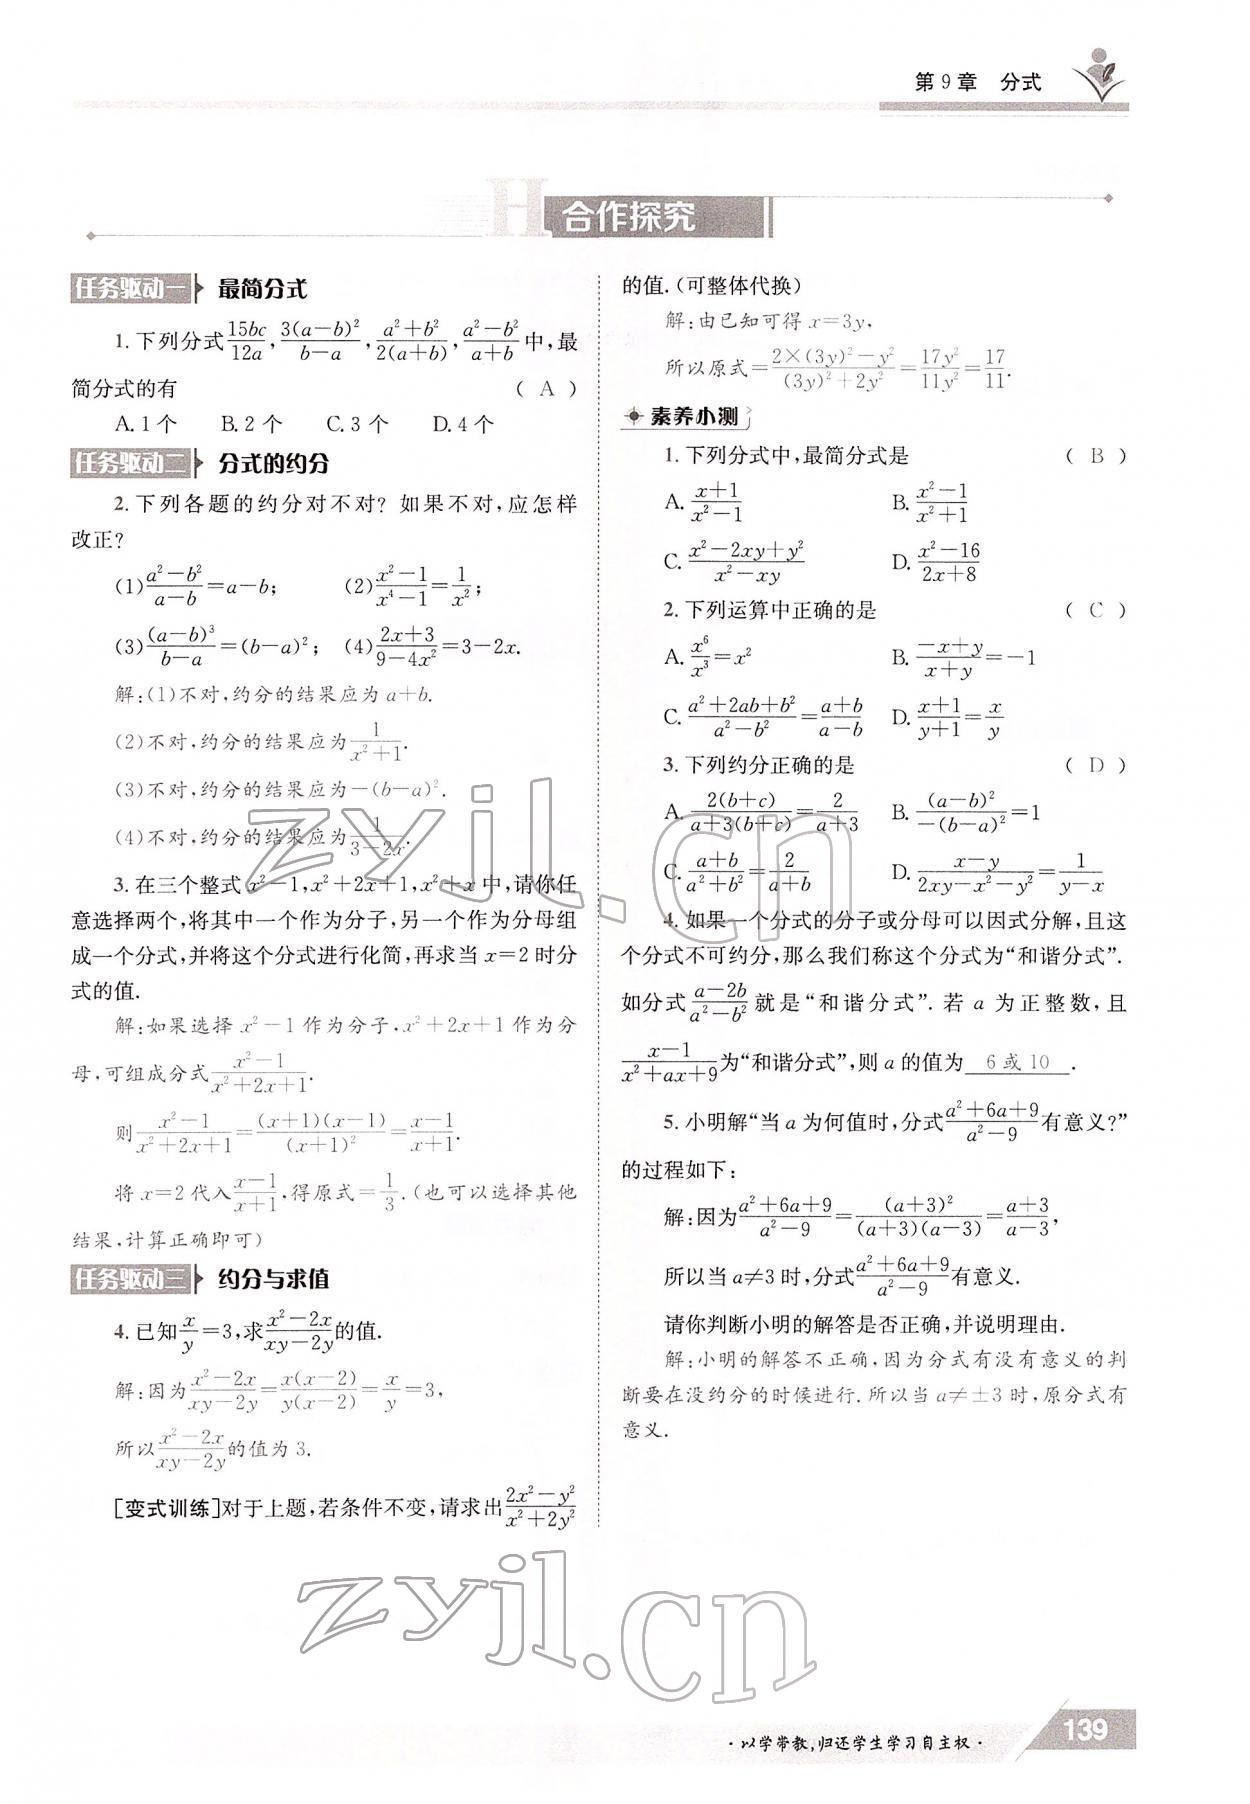 第9章 分式
H 合作探究
任务驱动一 最简分式
1. 下列分式15bc/12a, 3(a-b)²/(b-a), (a²+b²)/2(a+b), (a²-b²)/(a+b)中,最
简分式的有 ( A )
A. 1个 B. 2个 C. 3个 D. 4个
任务驱动二 分式的约分
2. 下列各题的约分对不对? 如果不对,应怎样
改正?
(1)(a²-b²)/(a-b)=a-b; (2)(x²-1)/(x⁴-1)=1/x²;
(3)(a-b)³/(b-a)=(b-a)²; (4)(2x+3)/(9-4x²)=3-2x.
解:(1)不对,约分的结果应为a+b.
(2)不对,约分的结果应为1/(x²+1).
(3)不对,约分的结果应为-(b-a)².
(4)不对,约分的结果应为1/(3-2x).
3. 在三个整式x²-1,x²+2x+1,x²+x中,请你任
意选择两个,将其中一个作为分子,另一个作为分母组
成一个分式,并将这个分式进行化简,再求当x=2时分
式的值.
解:如果选择x²-1作为分子,x²+2x+1作为分
母,可组成分式(x²-1)/(x²+2x+1).
则(x²-1)/(x²+2x+1)=(x+1)(x-1)/(x+1)²=(x-1)/(x+1).
将x=2代入(x-1)/(x+1),得原式=1/3.(也可以选择其他
结果,计算正确即可)
任务驱动三 约分与求值
4. 已知x/y=3,求(x²-2x)/(xy-2y)的值.
解:因为(x²-2x)/(xy-2y)=x(x-2)/y(x-2)=x/y=3,
所以(x²-2x)/(xy-2y)的值为3.
[变式训练]对于上题,若条件不变,请求出(2x²-y²)/(x²+2y²)
的值.(可整体代换)
解:由已知可得x=3y,
所以原式=(2×(3y)²-y²)/((3y)²+2y²)=17y²/11y²=17/11.
素养小测
1. 下列分式中,最简分式是 ( B )
A. (x+1)/(x²-1) B. (x²-1)/(x²+1)
C. (x²-2xy+y²)/(x²-xy) D. (x²-16)/(2x+8)
2. 下列运算中正确的是 ( C )
A. x⁶/x³=x² B. (-x+y)/(x+y)=-1
C. (a²+2ab+b²)/(a²-b²)=(a+b)/(a-b) D. (x+1)/(y+1)=x/y
3. 下列约分正确的是 ( D )
A. 2(b+c)/(a+3(b+c))=2/(a+3) B. (a-b)²/-(b-a)²=1
C. (a+b)/(a²+b²)=2/(a+b) D. (x-y)/(2xy-x²-y²)=1/(y-x)
4. 如果一个分式的分子或分母可以因式分解,且这
个分式不可约分,那么我们称这个分式为“和谐分式”.
如分式(a-2b)/(a²-b²)就是“和谐分式”. 若a为正整数,且
(x-1)/(x²+ax+9)为“和谐分式”,则a的值为 6或10 .
5. 小明解“当a为何值时,分式(a²+6a+9)/(a²-9)有意义?”
的过程如下:
解:因为(a²+6a+9)/(a²-9)=(a+3)²/(a+3)(a-3)=(a+3)/(a-3),
所以当a≠3时,分式(a²+6a+9)/(a²-9)有意义.
请你判断小明的解答是否正确,并说明理由.
解:小明的解答不正确,因为分式有没有意义的判
断要在没约分的时候进行. 所以当a≠±3时,原分式有
意义.
zyjl.cn
zyjl.cn
·以学带教,归还学生学习自主权·
139